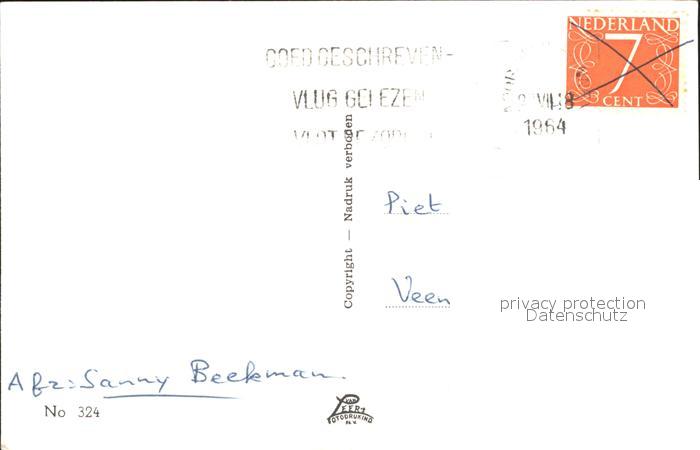 GOED GESCHREVEN-
VLUG GELEZEN
VLOT BEZORGD
VII 18
1964
NEDERLAND
7
CENT
Copyright — Nadruk verboden
Piet
Veen
privacy protection
Datenschutz
Afz: Sanny Beekman.
No 324
VAN
LEER'S
FOTODRUKIND
N.V.